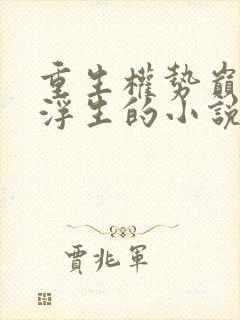 重生權勢巔
浮生的小說
賈兆軍